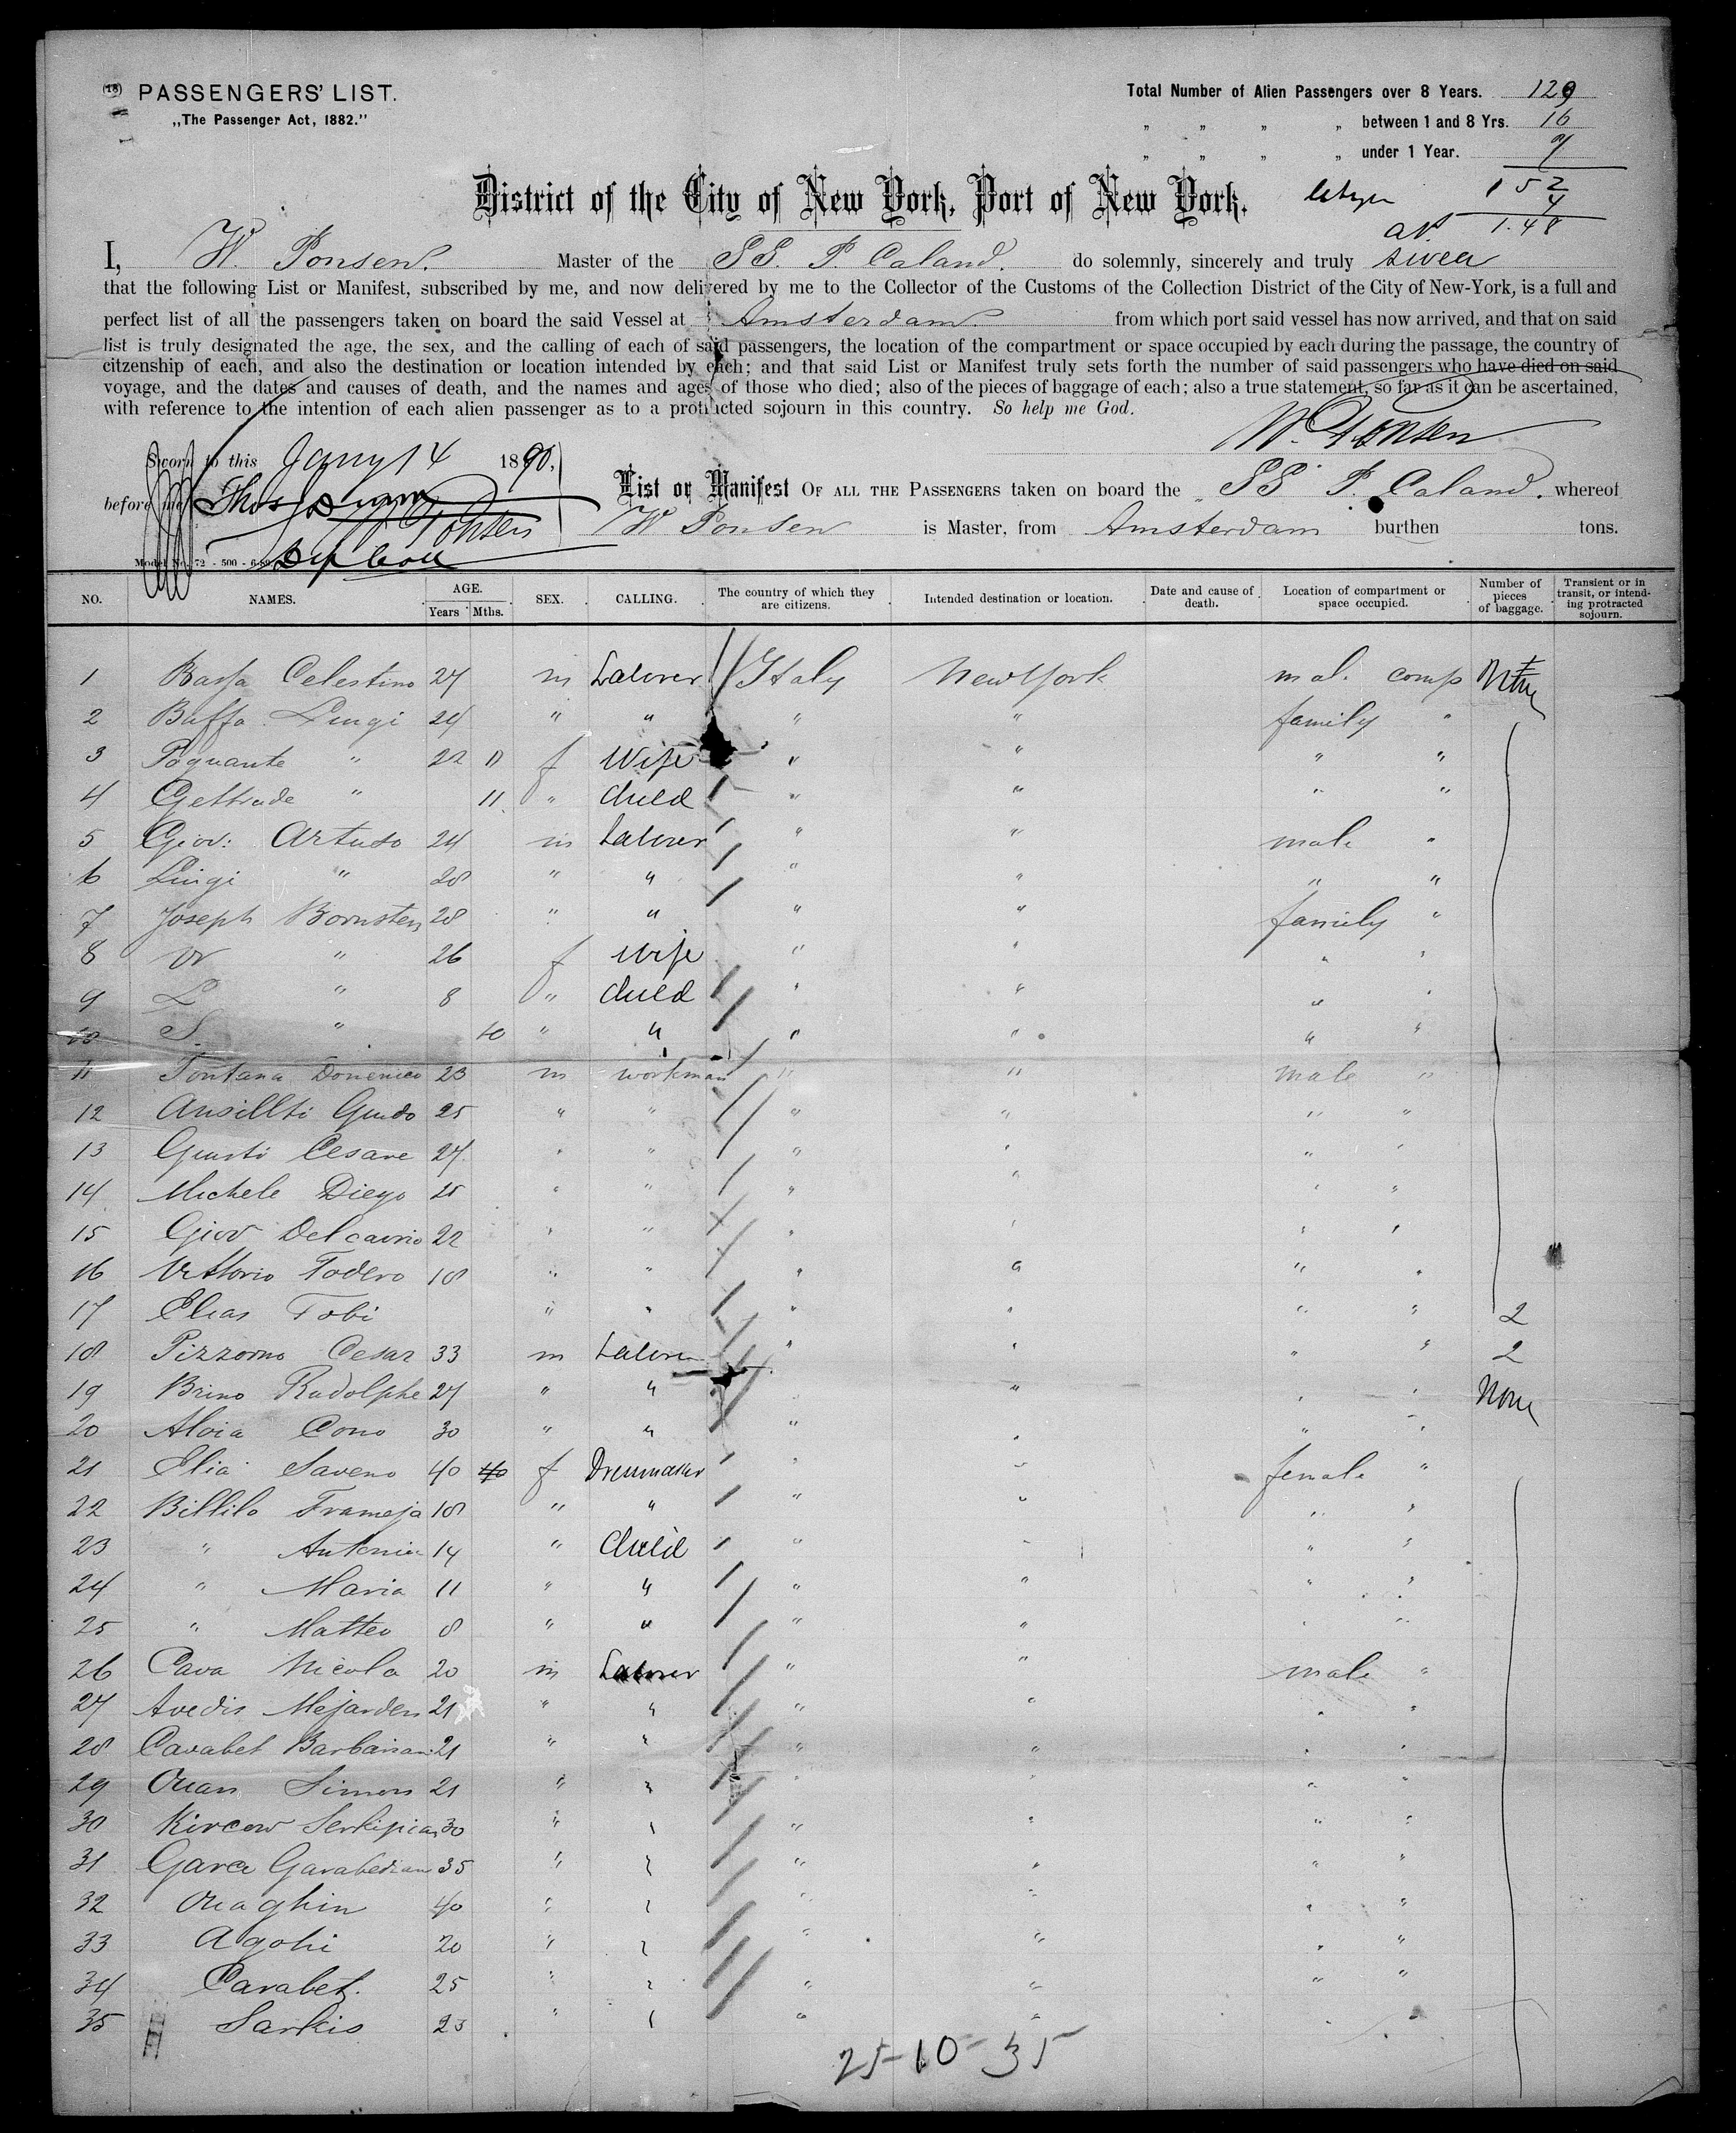 (18) PASSENGERS' LIST.
„The Passenger Act, 1882."
Total Number of Alien Passengers over 8 Years. 129
„ „ „ „ between 1 and 8 Yrs. 16
„ „ „ „ under 1 Year. 7
152
4
1.48
District of the City of New York, Port of New York.
I, W. Ponsen. Master of the SS. P. Caland. do solemnly, sincerely and truly swear
that the following List or Manifest, subscribed by me, and now delivered by me to the Collector of the Customs of the Collection District of the City of New-York, is a full and
perfect list of all the passengers taken on board the said Vessel at Amsterdam. from which port said vessel has now arrived, and that on said
list is truly designated the age, the sex, and the calling of each of said passengers, the location of the compartment or space occupied by each during the passage, the country of
citzenship of each, and also the destination or location intended by each; and that said List or Manifest truly sets forth the number of said passengers who have died on said
voyage, and the dates and causes of death, and the names and ages of those who died; also of the pieces of baggage of each; also a true statement, so far as it can be ascertained,
with reference to the intention of each alien passenger as to a protracted sojourn in this country. So help me God.
W. Ponsen
Sworn to this Jany 14 1890,
before me Thos
W Ponsen
Dep Coll
Model No. 72 - 500 - 6-89
List or Manifest OF ALL THE PASSENGERS taken on board the SS P. Caland. whereof
W Ponsen is Master, from Amsterdam burthen tons.
NO. NAMES. AGE. Years Mths. SEX. CALLING. The country of which they are citizens. Intended destination or location. Date and cause of death. Location of compartment or space occupied. Number of pieces of baggage. Transient or in transit, or intending protracted sojourn.
1 Bassa Celestino 27 m Laborer Italy New York mal. comp None
2 Buffa Luigi 24 " " " " family "
3 Poquante " 22 11 f Wife " " " "
4 Gettrude " 11 " Child " " " "
5 Giov: Artuso 24 m Laborer " " male "
6 Luigi " 28 " " " " " "
7 Joseph Bornstein 28 " " " " family "
8 W " 26 f Wife " " " "
9 L " 8 " Child " " " "
10 S. " 10 " " " " " "
11 Fontana Domenico 23 m workman " " male "
12 Ansillti Guido 25 " " " " " "
13 Giusti Cesare 27 " " " " " "
14 Michele Diego 25 " " " " " "
15 Giov Delcavrio 22 " " " " " "
16 Vittorio Todero 18 " " " " " "
17 Elias Tobi " " " " " " 2
18 Pizzorno Cesar 33 m Laborer " " " " 2
19 Brino Rudolphe 27 " " " " " None
20 Aloia Cono 30 " " " " "
21 Elia Saveno 40 40 f Dressmaker " " female "
22 Billilo Frameja 18 " " " " " "
23 " Antonia 14 " Child " " " "
24 " Maria 11 " " " " " "
25 " Matteo 8 " " " " " "
26 Cava Nicola 20 m Laborer " " male "
27 Avedis Mejarden 21 " " " " " "
28 Cavabet Barbarian 21 " " " " " "
29 Ouan Simon 21 " " " " " "
30 Kircow Serkipian 30 " " " " " "
31 Gara Garabedian 35 " " " " " "
32 Ouaghin 40 " " " " " "
33 Agohi 20 " " " " " "
34 Carabet. 25 " " " " " "
35 Sarkis 23 " " " " " "
25-10-35